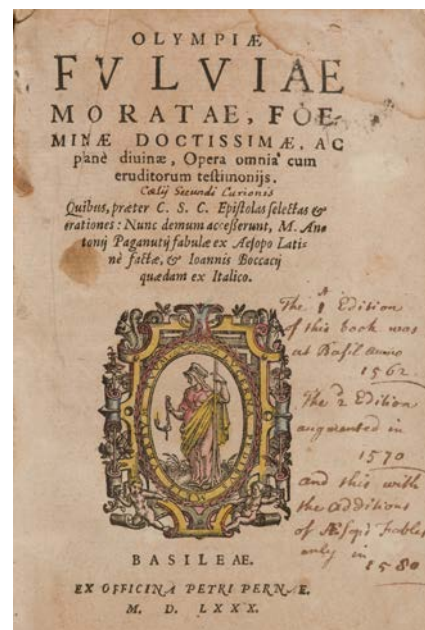 OLYMPIÆ
FVLVIAE
MORATAE, FOE-
MINÆ DOCTISSIMÆ, AC
planè diuinæ, Opera omnia cum
eruditorum testimonijs.
Cælij Secundi Curionis
Quibus, præter C. S. C. Epistolas selectas &
orationes: Nunc demum accesserunt, M. An-
tonij Paganutij fabulæ ex Aesopo Lati-
nè factæ, & Ioannis Boccacij
quædam ex Italico.
The 1 Edition
of this book was
at Basil anno
1562.
The 2 Edition
augmented in
1570
and this with
the additions
of Æsops Fables
only in
1580
BASILEAE.
EX OFFICINA PETRI PERNÆ.
M. D. LXXX.